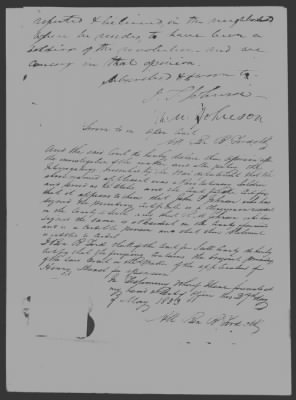 reputed & believed, in the neighborhood
where he resides, to have been a
soldier of the revolution and we
concur in that opinion.
Subscribed & sworn to
J. T. Johnson
W. M. Johnson
Sworn to in open Court
Att Ben B. Ford Clk
And the said Court do hereby declare their opinion after
the investigation of the matter, and after putting the
interrogatories prescribed by the War Department that the
above named applicant was a revolutionary soldier
and served as he states, and the Court further certify
that it appears to them that John T. Johnson who has
signed the preceding certificate is a clergyman resident
in the County and that
signed the same is a resident in the County
and is a credible person and that their statement
is entitled to credit.
I Ben B. Ford Clerk of the Court for Scott County do hereby
certify that the foregoing contains the original proceedings
of the said Court in the matter of the application of
Henry for pension
In Testimony Whereof I have hereunto set
my hand & seal of office this day
of May 1833
Att Ben B. Ford Clk